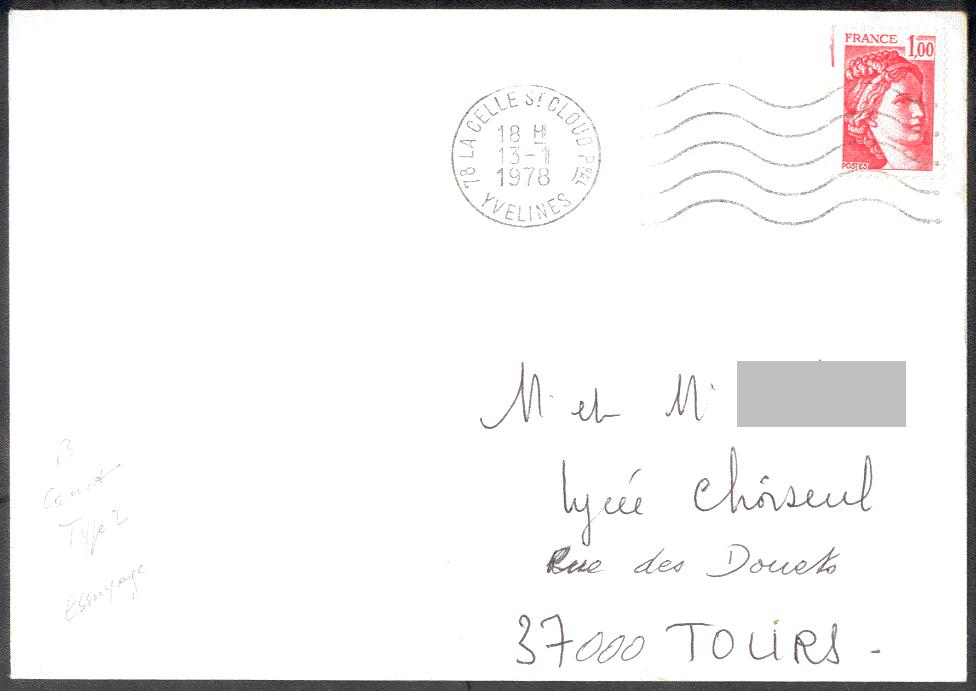 FRANCE 1,00
POSTES
78 LA CELLE St CLOUD PPAL
18 H
13-1
1978
YVELINES
M. et M.
Lycée Choiseul
Rue des Douets
37000 TOURS.
B
Carnet
Type 2
Essuyage